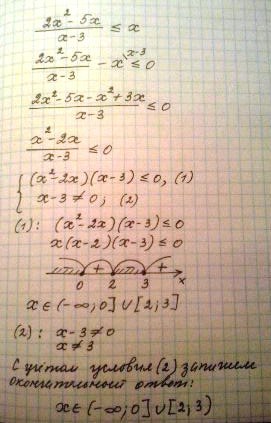 (2x² - 5x)/(x-3) ≤ x
(2x² - 5x)/(x-3) - x^(x-3) ≤ 0
(2x² - 5x - x² + 3x)/(x-3) ≤ 0
(x² - 2x)/(x-3) ≤ 0
{ (x² - 2x)(x-3) ≤ 0, (1)
x-3 ≠ 0, (2)
(1): (x² - 2x)(x-3) ≤ 0
x(x-2)(x-3) ≤ 0
- + - +
0 2 3 x
x ∈ (-∞; 0] ∪ [2; 3]
(2): x-3 ≠ 0
x ≠ 3
С учётом условия (2) запишем
окончательный ответ:
x ∈ (-∞; 0] ∪ [2; 3)